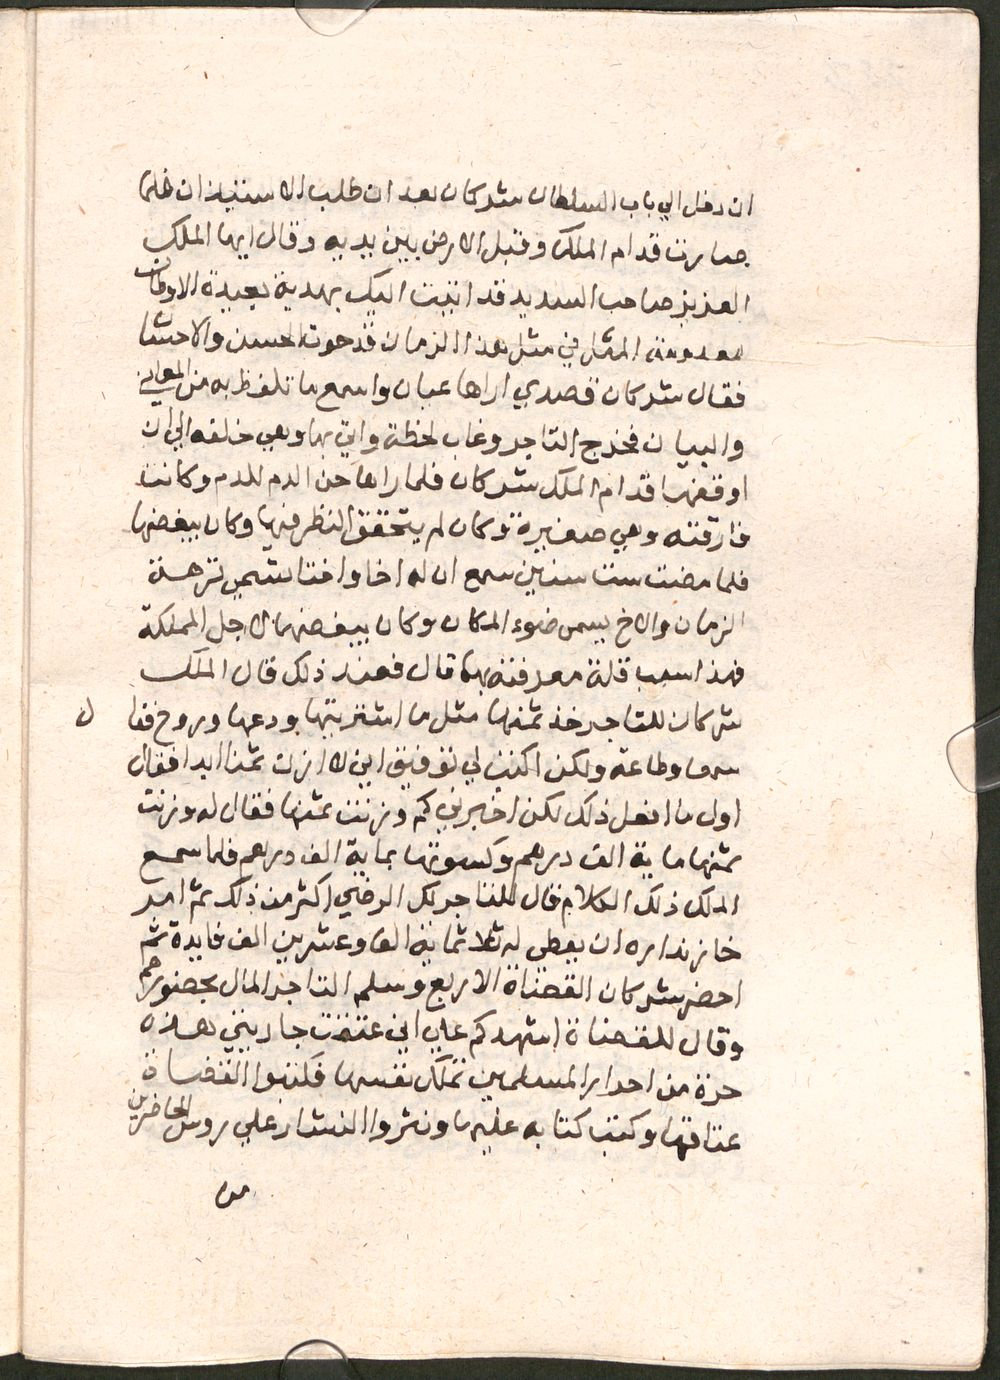 ان دخل الي باب السلطان شركان بعد ان طلب الاستيذان فلما
صارت قدام الملك وقبل الارض بين يديه وقال ايها الملك
العزيز صاحب السديد قد اتيت اليك بهدية بعيدة الاوطان
معدومة المثل في مثل هذا الزمان قد حوت الحسن والاحسان
فقال شركان قصدي اراها عيان واسمع ما تلفظ به من المعاني
والبيان فخرج التاجر وغاب لحظة واتي بها وهي خلفه الي ان
اوقفها قدام الملك شركان فلما راها حن الدم للدم وكانت
فارقته وهي صغيرة وكان لم يتحقق النظر فيها وكان يبغضها
فلما مضت ست سنين سمع ان له اخا واختا تسمي نزهة
الزمان والاخ يسمي ضوء المكان وكان يبغضهما لاجل المملكة
فهذا سبب قلة معرفته بها قال فعند ذلك قال الملك
شركان للتاجر خذ ثمنها مثل ما اشتريتها ودعها وروح فقا ل
سمعا وطاعة ولكن اكتب لي توقيع اني لا ازن ثمنا ابدا فقال
اول ما افعل ذلك لكن اخبرني كم وزنت ثمنها فقال له وزنت
ثمنها ماية الف درهم وكسوتها بماية الف درهم فلما سمع
الملك ذلك الكلام قال للتاجر لك الرضي اكثر من ذلك ثم امر
خازنداره ان يعطي له ثلاثماية الف وعشرين الف فايدة ثم
احضر شركان القضاة الاربع وسلم التاجر المال بحضورهم
وقال للقضاة اشهدكم علي اني عتقت جاريتي هذه
حرة من احرار المسلمين تملك نفسها فكتبوا القضاة
عتاقها وكتب كتابه عليها ونثروا النثار علي روس الحاضرين
من